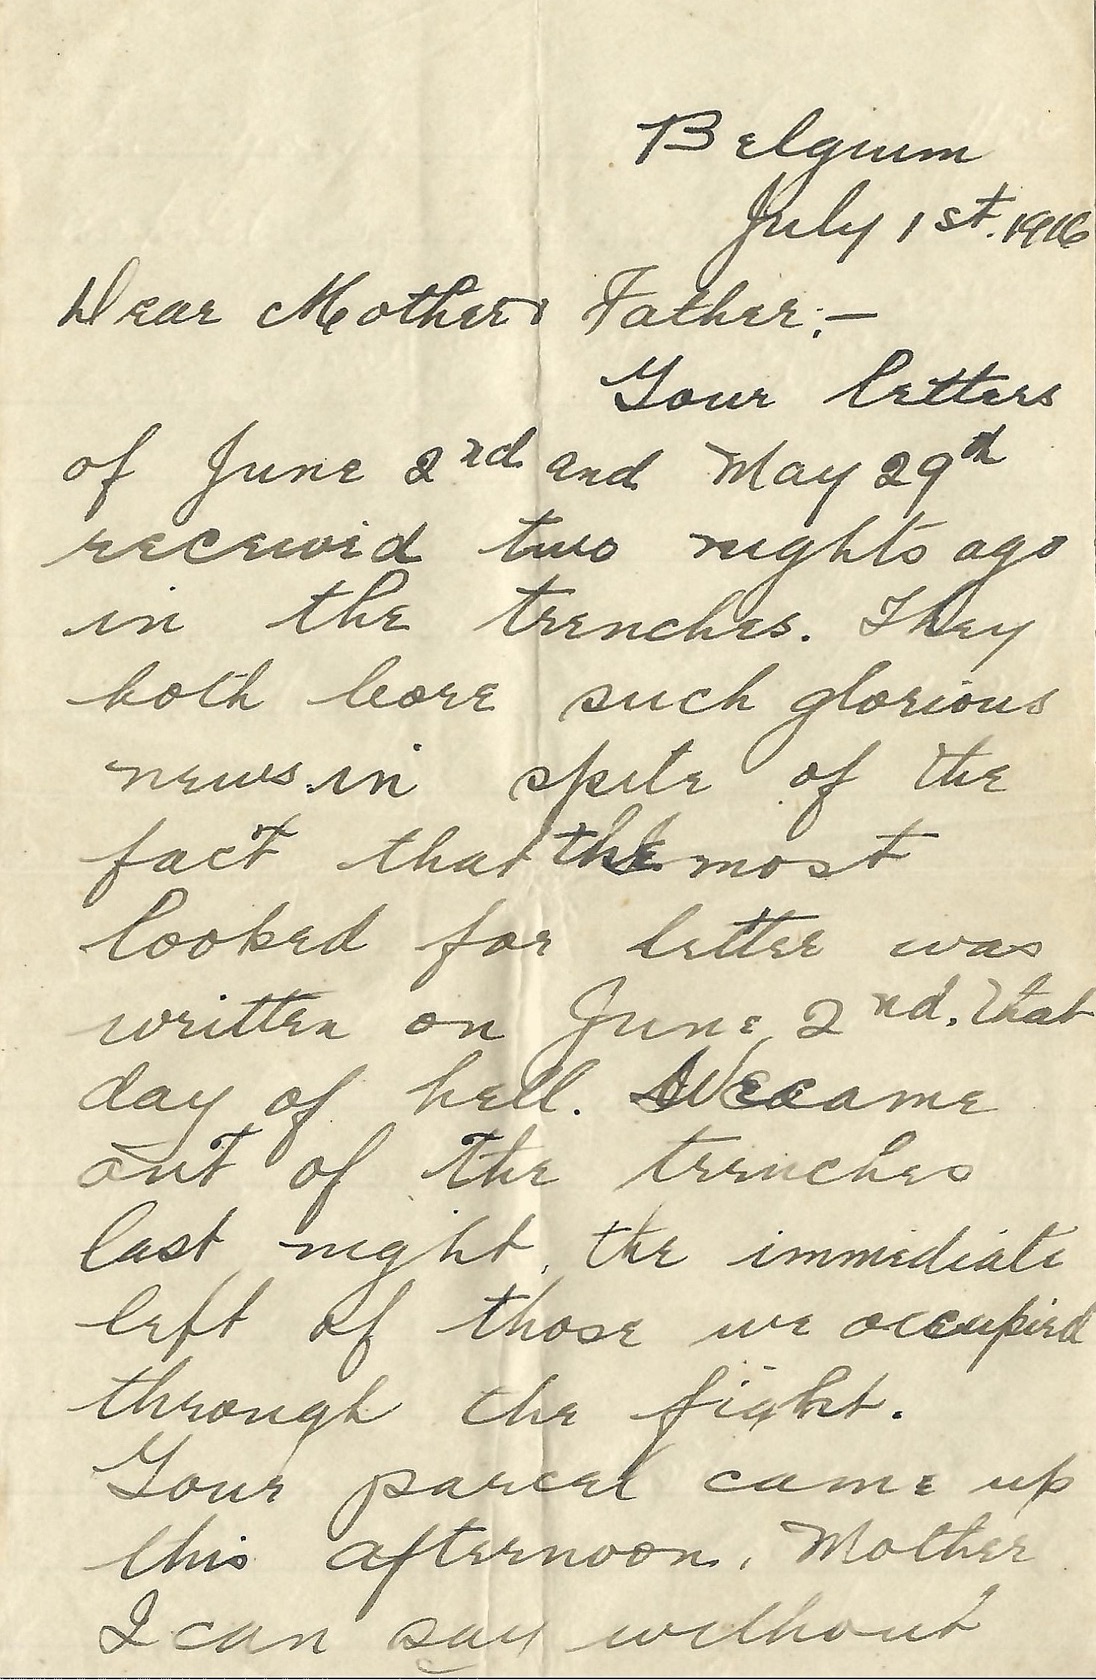 Belgium
July 1st. 1916
Dear Mother & Father:-
Your letters
of June 2nd and May 29th
received two nights ago
in the trenches. They
both bore such glorious
news in spite of the
fact that the most
looked for letter was
written on June 2nd. That
day of hell. We came
out of the trenches
last night, the immediate
left of those we occupied
through the fight.
Your parcel came up
this afternoon. Mother
I can say without